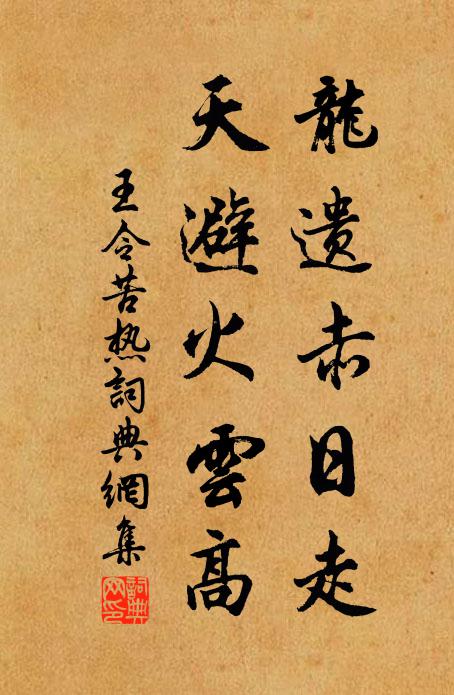 龍遺赤日走
天避火雲高
王令苦热詞典網集
詞典網印